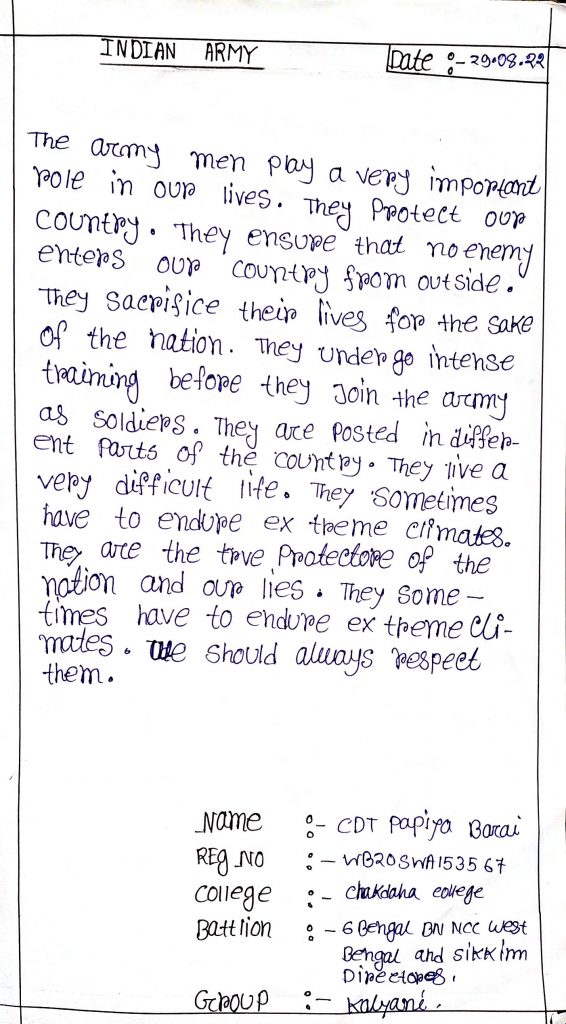 INDIAN ARMY
Date :- 29.08.22
The army men play a very important
role in our lives. They Protect our
country. They ensure that no enemy
enters our country from outside.
They sacrifice their lives for the sake
of the nation. They under go intense
traiming before they Join the army
as soldiers. They are posted in differ-
ent Parts of the country. They live a
very difficult life. They sometimes
have to endure ex treme climates.
They are the true Protectore of the
nation and our lies. They some -
times have to endure ex treme cli-
mates. We should always respect
them.
Name :- CDT Papiya Barai
REg No :- WB20SWA153567
College :- Chakdaha college
Battlion :- 6 Bengal BN NCC West
Bengal and Sikkim
Directores.
Group :- Kalyani.